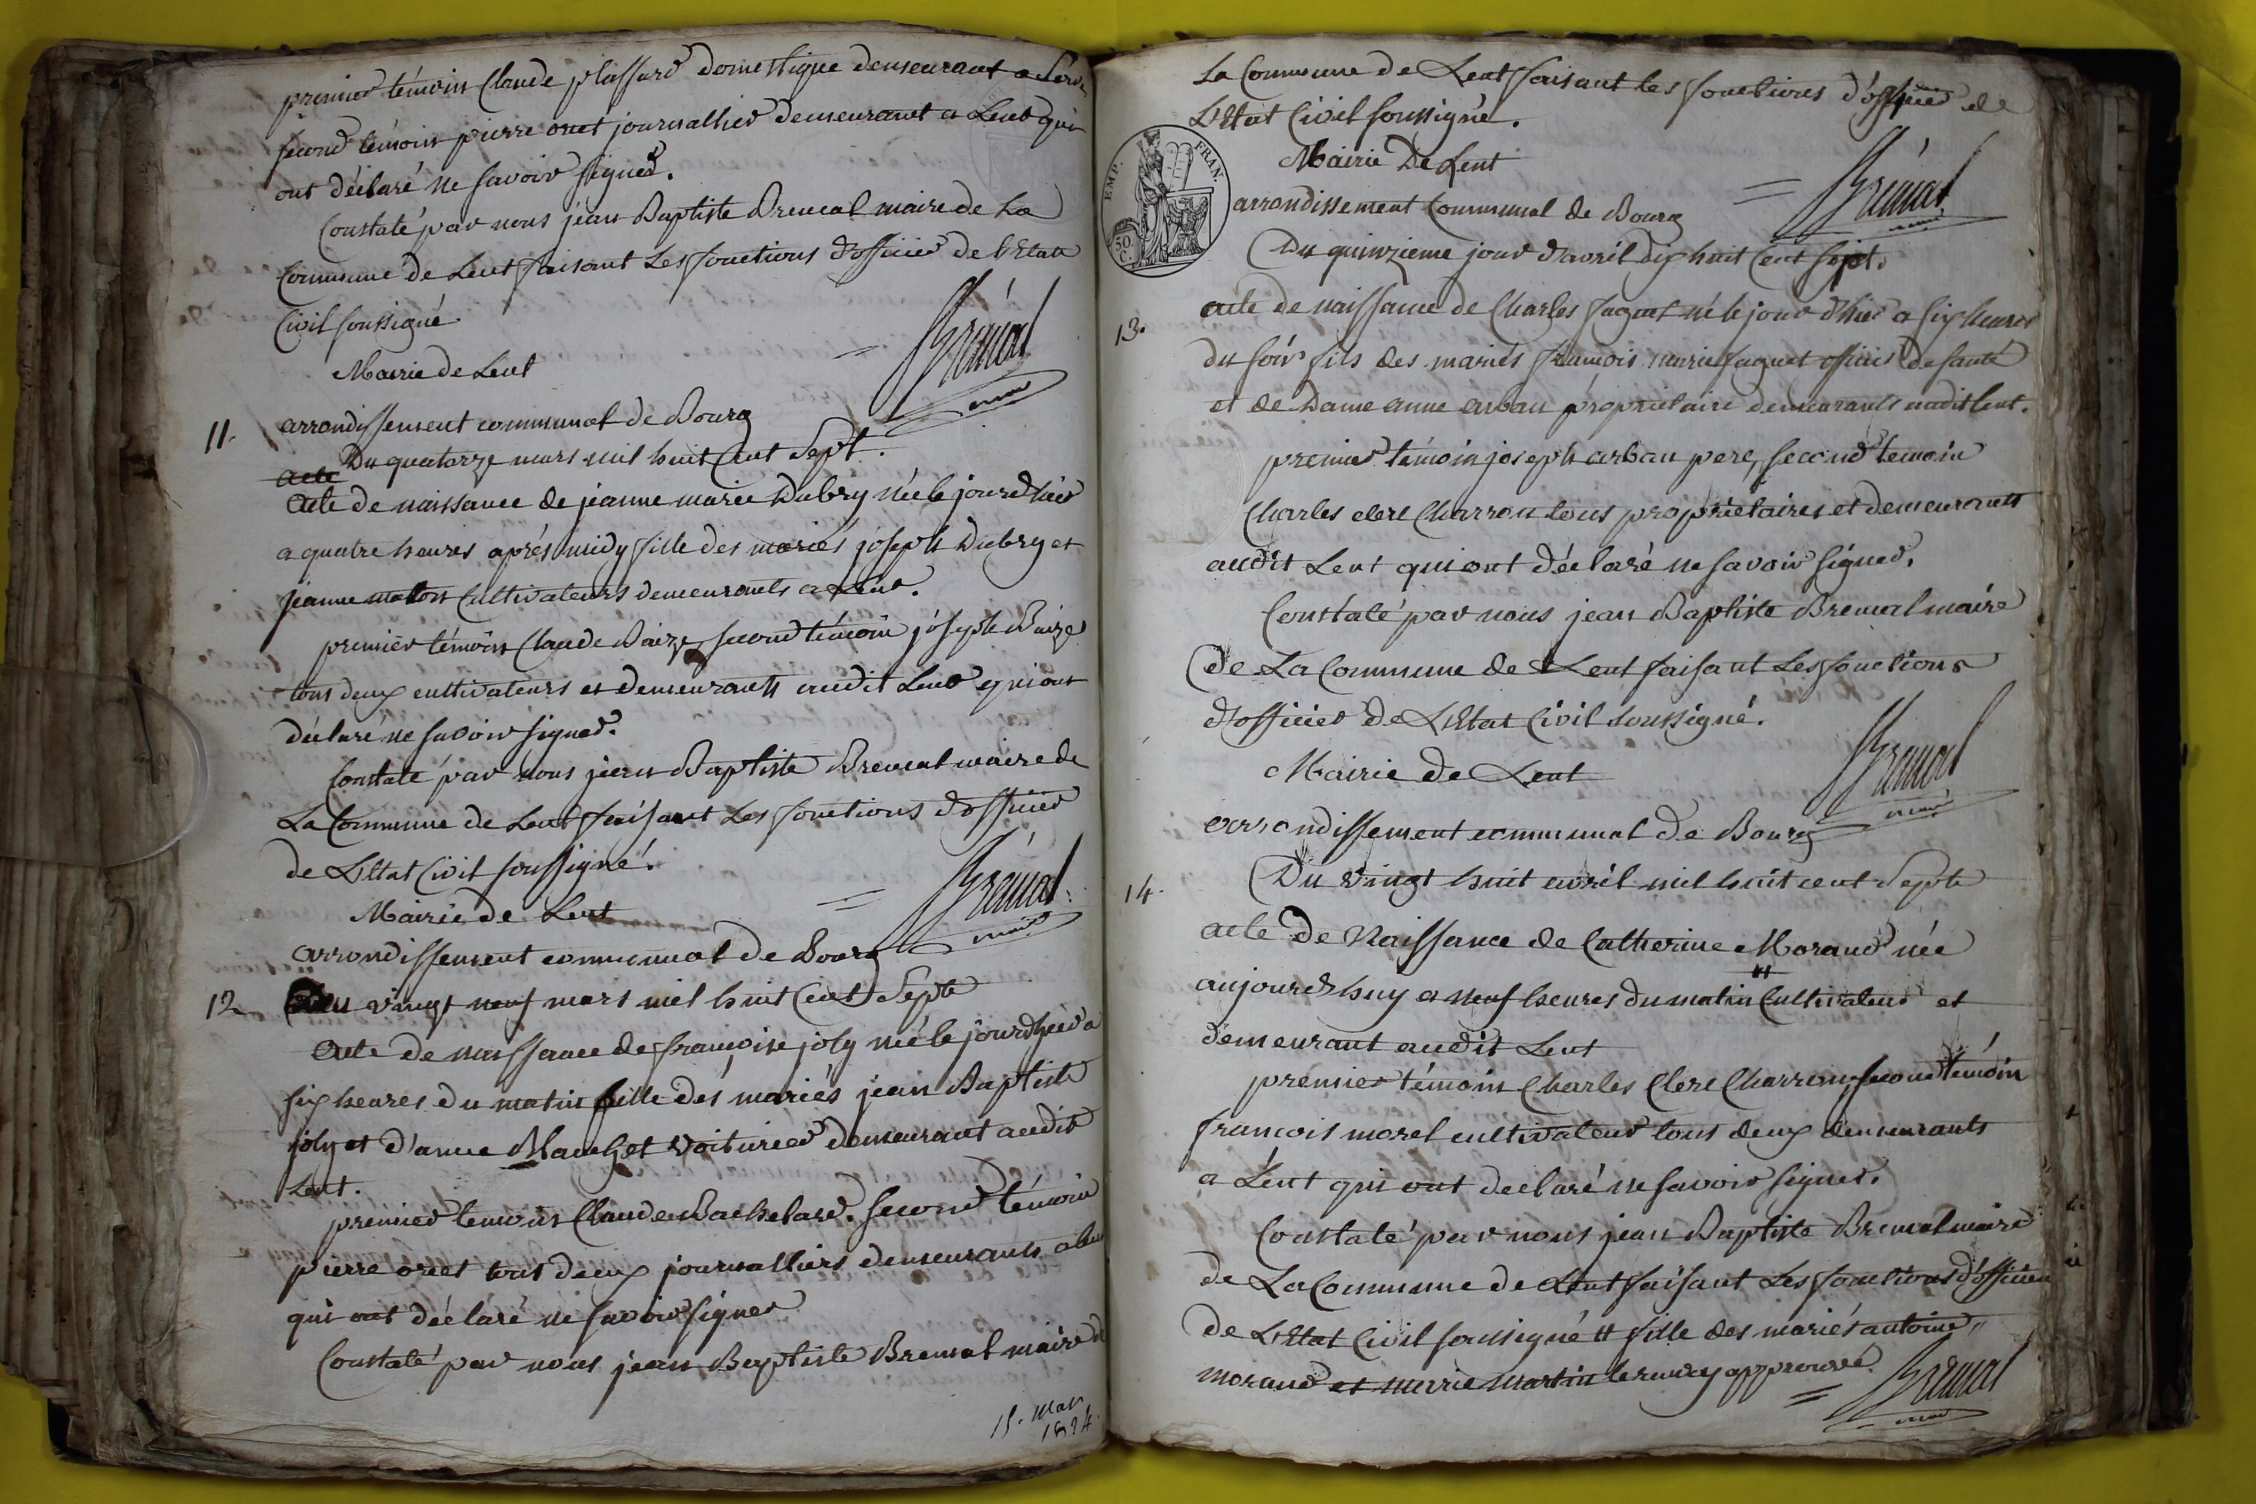 premier témoin Claude plassard domestique demeurant a
second témoin pierre oret journallier demeurant a Lent qui
ont déclaré ne savoir signer.
Constaté par nous jean Baptiste Breuval maire de La
Commune de Lent faisant Les fonctions d'officier de l'Etat
Civil soussigné
Mairie de Lent
arrondissement communal de Bourg
11.
Du quatorze mars mil huit Cent Sept.
acte
acte de naissance de jeanne marie Dubry née le jour d'hier
a quatre heures après midy fille des mariés joseph Dubry et
jeanne Cultivateurs demeurants a Lent.
premier témoin Claude Baize, second témoin joseph Baize
tous deux cultivateurs et demeurants audit Lent qui ont
déclaré ne savoir signer.
Constaté par nous jean Baptiste Breuval maire de
La Commune de Lent faisant Les fonctions d'officier
de L'Etat Civil soussigné.
Mairie de Lent
arrondissement communal de Bourg
12
Du vingt neuf mars mil huit Cent Sept
Acte de naissance de françoise joly née le jour d'hier a
six heures du matin fille des mariés jean Baptiste
joly et d'anne Blanchet voiturier demeurant audit
Lent.
premier temoin Claude Bachelard. second témoin
pierre oret tous deux journalliers demeurants a Lent
qui ont déclaré ne savoir signer
Constaté par nous jean Baptiste Breuval maire de
15. mars
1824.
La Commune de Lent faisant les fonctions d'officier de
L'Etat Civil soussigné.
EMP. FRAN.
50. C.
Mairie De Lent
Breuval
arrondissement Communal de Bourg
Du quinzieme jour d'avril dix huit Cent sept.
13.
acte de naissance de Charles faguet né le jour d'hier a six heures
du soir fils des mariés françois marie faguet officier de santé
et de Dame anne arban propriétaire demeurants audit Lent.
premier témoin joseph arban pere, second temoin
Charles clerc Charron tous propriétaires et demeurants
audit Lent qui ont déclaré ne savoir signer.
Constaté par nous jean Baptiste Breuval maire
de La Commune de Lent faisant Les fonctions
d'officier de L'Etat Civil soussigné.
Mairie de Lent
Breuval
arrondissement communal de Bourg
Du vingt huit avril mil huit cent Sept
14.
acte de Naissance de Catherine Morand née
aujourd'huy a neuf heures du matin Cultivateur et
demeurant audit Lent
premier témoin Charles Clerc Charron, second témoin
françois morel cultivateur tous deux demeurants
a Lent qui ont declaré ne savoir signer.
Constaté par nous jean Baptiste Breuval maire
de La Commune de Lent faisant Les fonctions d'officier
de L'Etat Civil soussigné # fille des mariés antoine
morand et marie martin le renvoy approuvé.
Breuval